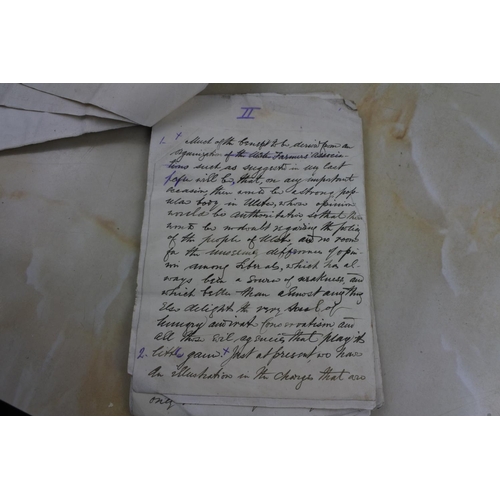 II
1. + Much of the benefit to be derived from an
organization of the Ulster Farmers' Associa
tions such, as suggested in my last
paper will be, that, on any important
occasion, there would be a strong pop
ular body in Ulster, whose opinion
would be authoritative so that there
would be no doubt regarding the policy
of the people of Ulster, and no room
for the unseemly differences of opin
ion among Liberals, which has al
ways been a source of weakness, and
which better than almost anything
else delights the very soul of
hungry and conservatism and
all the evil agencies that play its
2. little game. + Just at present we have
an illustration in the charges that are
only